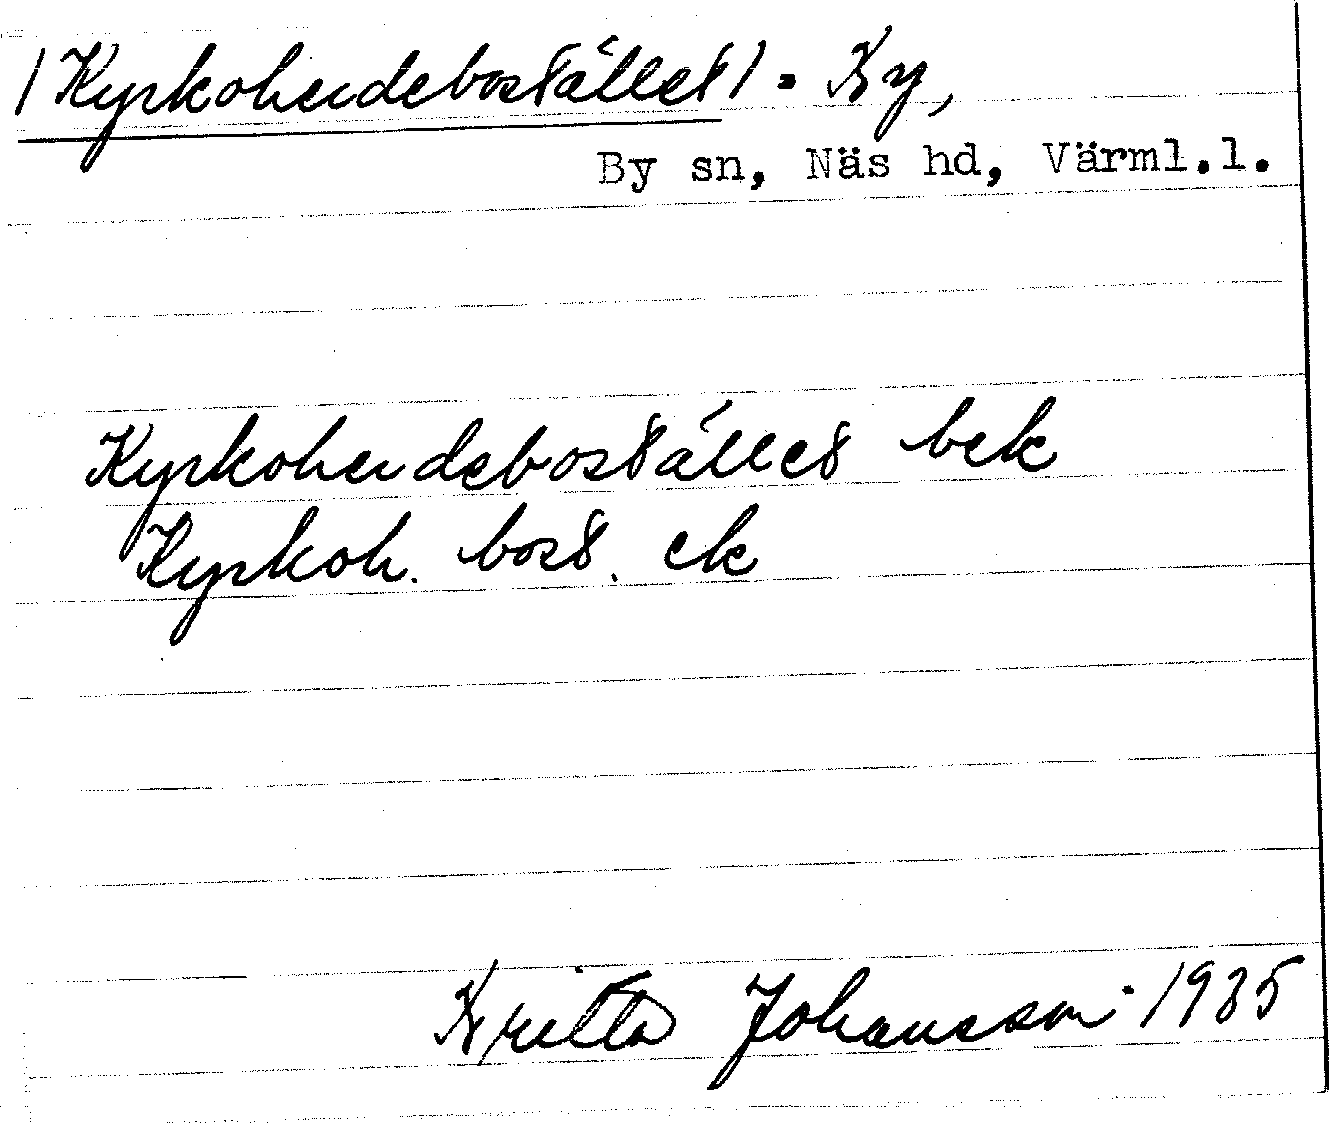 /Kyrkoherdebostället/ = Ky,
By sn, Näs hd, Värml.l.
Kyrkoherdebostället bek
Kyrkoh. bost. ek
Johansson 1935